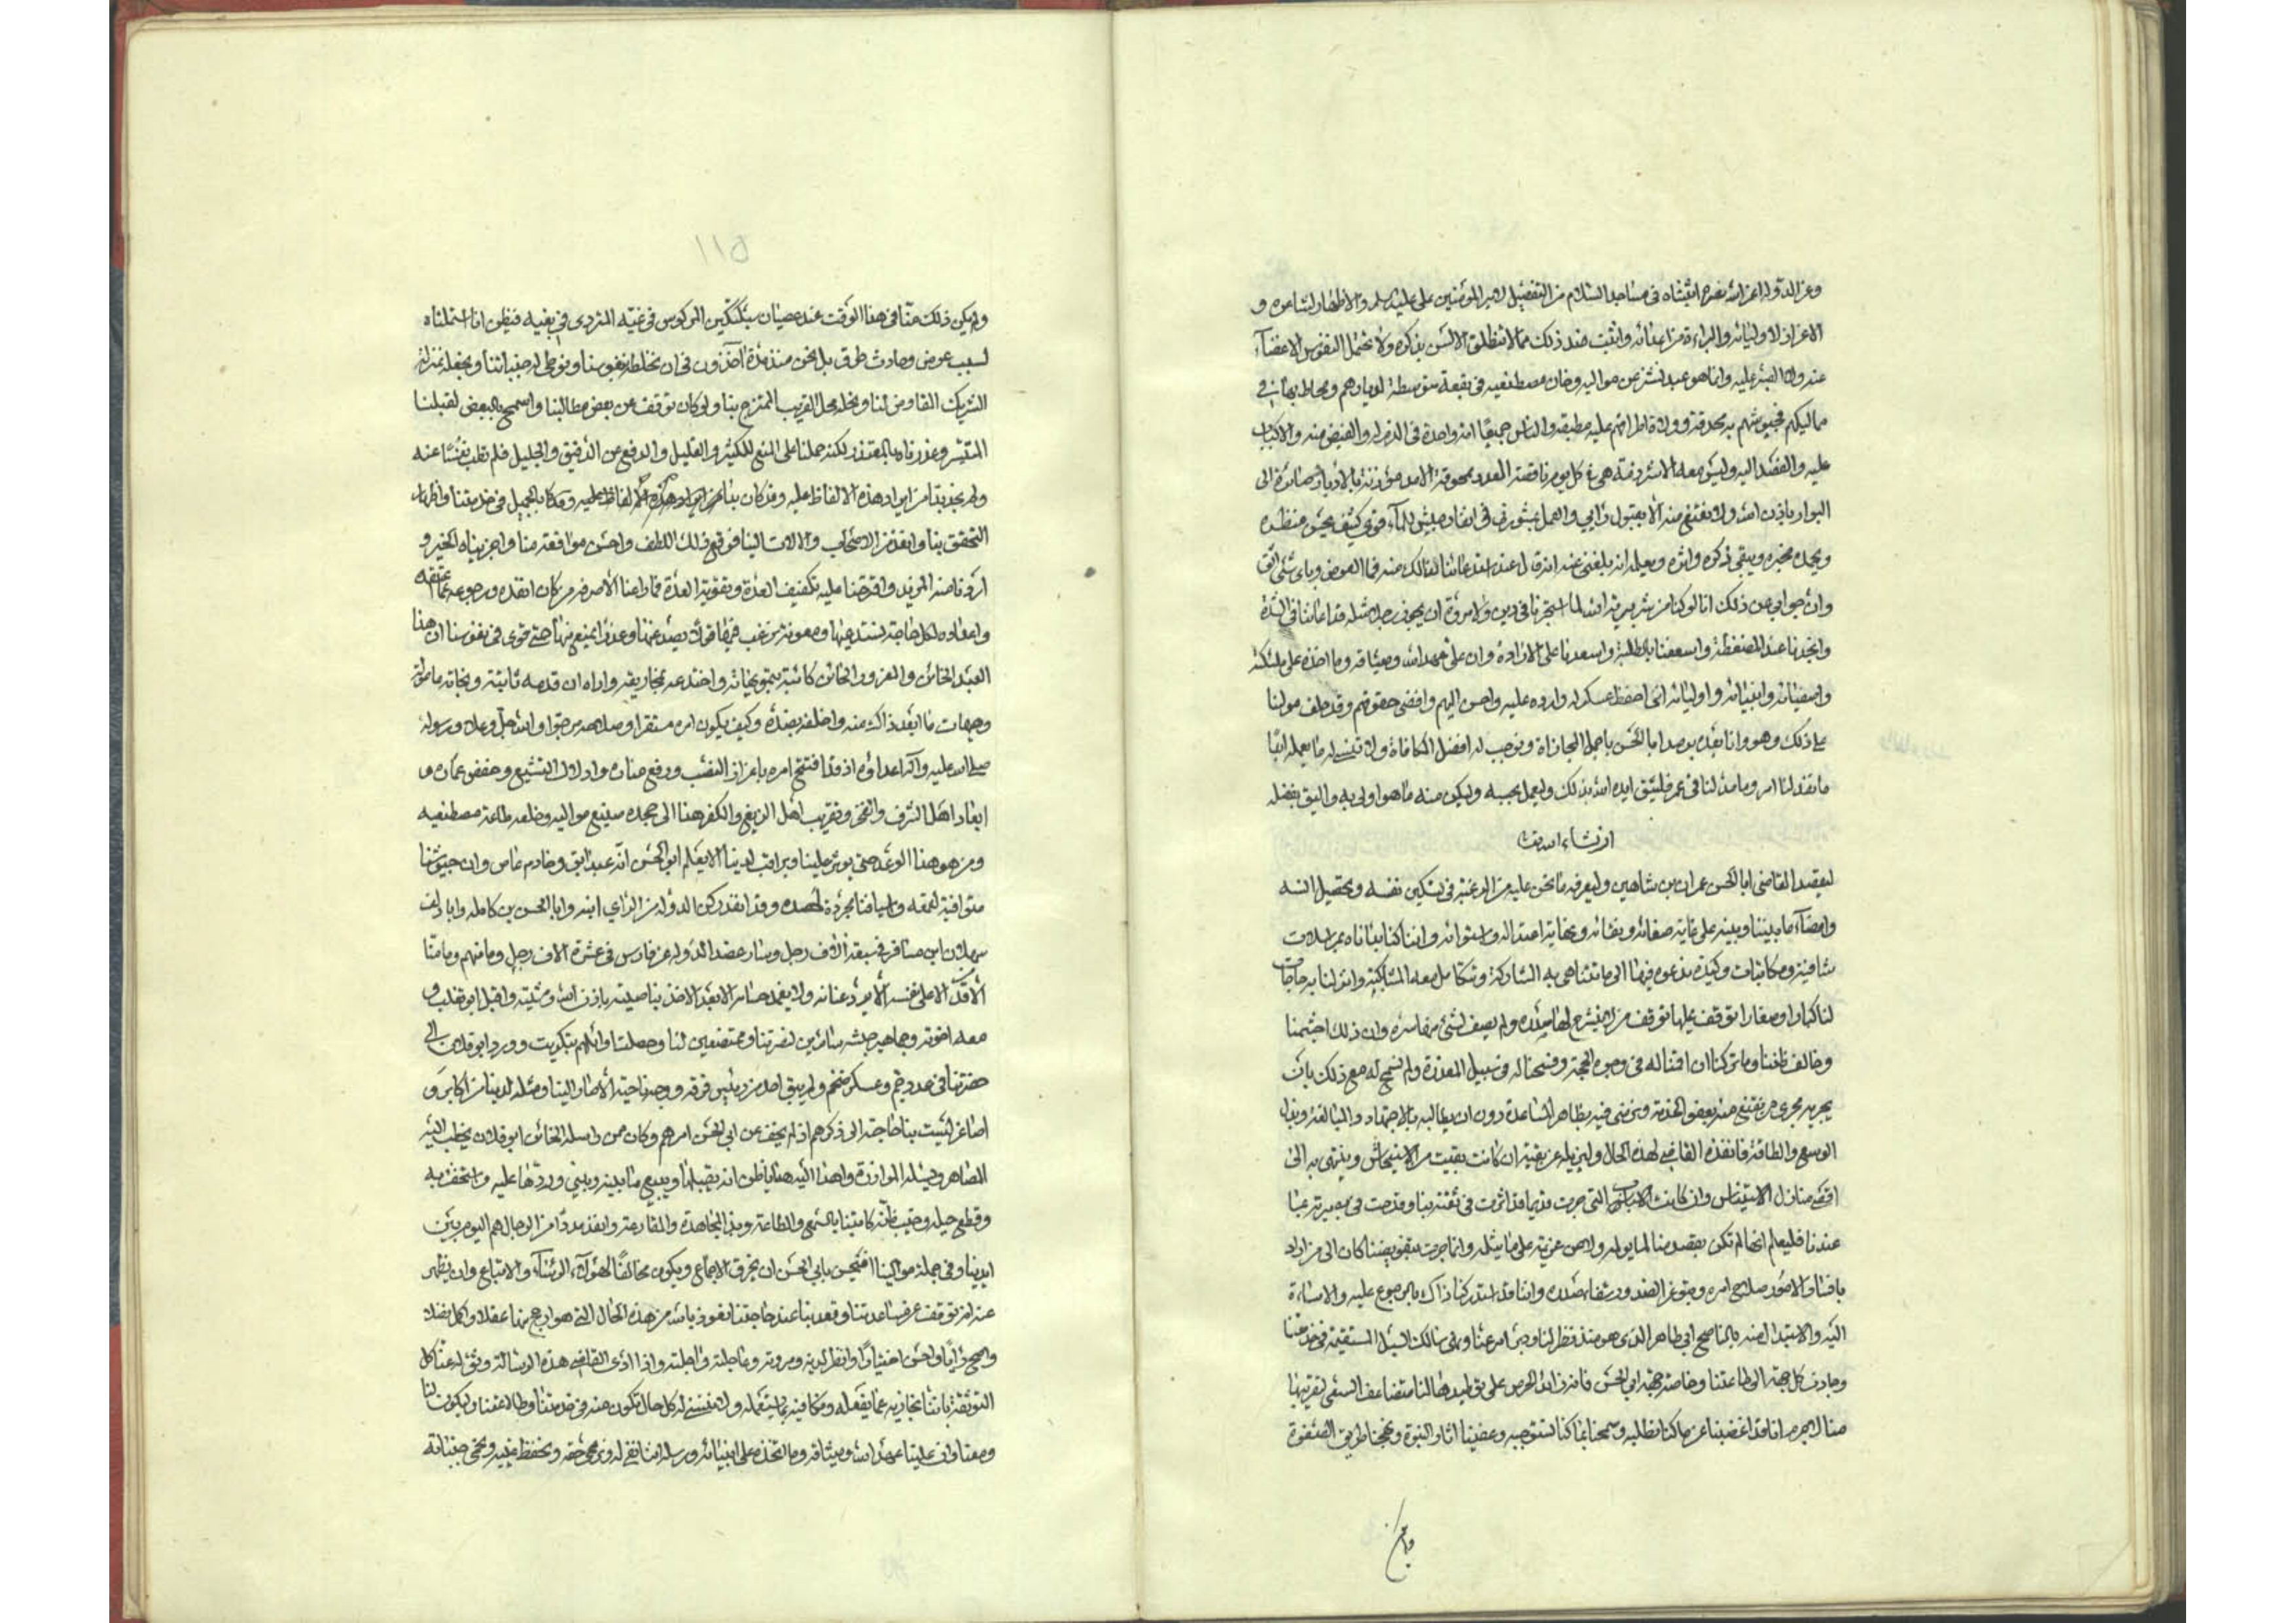 وعز الدولة اعزه الله يعرفه انتشاه في مساجد السلام من التفضيل لامير المؤمنين علي عليه السلم والاظهار لشاعره و
الاعزاز لاوليائه والبراءة من اعدائه وانبث ضد ذلك مما لا تنطلق الالسن بذكره ولا تحتمل النفوس الاغضاء
عنه ولا الصبر عليه وانما هو عبد نشز عن مواليه وخان مصطنعيه في بقعة متوسطة لديارهم ومحاط بها في
ممالكهم فجيوشهم به محدقة وولاة اطرافهم عليه مطبقة والناس جميعا امة واحدة في الذم له والغيض منه والاكباب
عليه والقصد اليه وليس معه الا شرذمة هي في كل يوم ناقصة العدد ممحوقة الامد مؤذنة بالادبار صائرة الى
البوار باذن الله ولا نقنع منه الا بقبول رايي والعمل بمشورتي في انفاد جيش الماء قوي كثيف يحسن منظره
ويحمد مخبره ويبقى ذكره واثره ويعلم انه بلغني عنه انه قال عند استدعائنا لذلك منه فما العوض وباي شئ اثق
وان جوابي عن ذلك انا لو كنا من شر برية الله لما استجزنا في دين ولا مروة ان يجفى رجل مثله قد اعاننا في الشدة
وانجدنا عند الضغطة واسعفنا بالطلبة واسعدنا على الارادة وان علي عهد الله وميثاقه وما اخذه على ملئكته
واصفيائه وانبيائه واوليائه انني احفظ عسكره وارده عليه واحسن اليهم واقضي حقوقهم وقد حلف مولنا
على ذلك وهو وانا بعده يوصد ابا الحسن باجمل المجازاة ونوجب له افضل المكافاة ولا ننسى له ما يعمله ابدا
ما نفذ لنا امر وما مد لنا في عمر فليثق ايده الله بذلك وليعمل بحسبه وليكن منه ما هو اولى به واليق بفضله
ان شاء الله تعالى
ليقصد القاضي ابا الحسن عمران بن شاهين وليعرفه ما نحن عليه من الرغبة في تسكين نفسه وتحصيل انسه
وامضاء ما بيننا وبينه على غاية صفائه ونقائه ونهاية اعتداله واستوائه واننا كنا بدأناه بمراسلات
شافية ومكاتبات وكيدة ندعوه فيها الى ما تتناهى به المشاركة وتتكامل معه المشابكة وانزلنا به حاجات
لنا كبارا وصغارا توقف عليها توقف من لم ينشرح لها صدره ولم يصف لشئ منها سره وان ذلك احشمنا
وخالف ظننا وما تركنا ان اقمنا له في وجوه الحجة وفسحنا له في سبيل المعذرة ولم نسمح له مع ذلك بان
يجريه مجرى من نقنع منه ببعض الخدمة ونرضى فيه بظاهر المساعدة دون ان يطالبه بالاجتهاد والمبالغة وبذل
الوسع والطاقة فانفذنا القاضي لهذه الحال وليزيله عن بقية ان كانت بقيت من الاستيحاش وينتهي به الى
اقصى منازل الاستيناس وان كانت الاسباب التي جرت قديما قد اثرت في ثقته بنا وقدحت في بصيرته عنا
عندنا فليعلم انها لم تكن بقصد منا لما يوله ولا عن عزيمة على ما يثله وانما جرت بتفويضنا كان الى من اراد
بافساد الامور صلاح امره وبتوغر الصدور شفاء صدره واننا قد استدركنا ذاك بالرجوع عليه والاساءة
اليه والاستبدال منه بالناصح ابي طاهر الذي هو منذ نظر لنا ودبر امرعنا وبني سالك السبل المستقيمة في خدمتنا
وجاذب كل جهة الى طاعتنا وخاصة جهة ابي الحسن فانه زائد الحرص على توطيدها لنا متضاعف السعي لتقريبها
منا لا جرم انا قد اغضينا عن ما كنا نطلبه وسمحنا بما كنا نستوجبه وعفينا اثار النبوة ونهجنا طريق الصفوة
وان
١١٥
ولم يكن ذلك منا في هذا الوقت عند عصيان سبكتكين المركوس في غيه المتردي في بغيه فيظن انا استملناه
لسبب عرض وحادث طرق بل نحن منذ مدة آخذون في ان نخلطه بنفوسنا ونوطئ له جنباتنا ونجعله بمنزلة
الشريك المفاوض لنا ونحله محل القريب الممتزج بنا ولو كان توقف عن بعض مطالبنا واسمح بالبعض لقبلنا
المتيسر وعذرناه بالمتعذر لكنه حملنا على المنع للكثير والقليل والدفع عن الدقيق والجليل فلم نطب نفسا عنه
ولم نجد بدا من ايراد هذه الالفاظ عليه وقد كان بدأنا بالجميل في خدمتنا واظهار
التحقق بنا وانفذ من الاصحاب والالات الينا فوقع ذلك اللطف واحسن موافقة منا واجزيناه الخير و
اردنا منه المزيد واقترحنا عليه تكثيف العدة وتقوية العدة فما راعنا الا صرفه من كان انفذه ورجوعه عما عقده
واعتاده لكل حاجة نستدعيها ومعونة نرغب فيها قولا يصد عنها وعذرا يمنع منها حتى قوي في نفوسنا ان هذا
العبد الخائن والمغرور الحائن كاتبه بتمويهاته واختدعه بمخاريقه واراه ان قدمه ثابتة ونجاته مامولة
وهيهات ما ابعد ذاك منه واخلفه بضده وكيف يكون امره مستقرا وصلاحه مرجوا والله جل وعلا ورسوله
صلى الله عليه وآله اعداؤه اذ قد افتتح امره باعزاز النصب ورفع مناره واذلال التشيع وخفض عماده و
ابعاد اهل الشرف والفخر وتقريب اهل الزيغ والكفر هذا الى جحده صنيع مواليه وخلعه طاعة مصطنعيه
ومن هو هذا الوغد حتى يوثر علينا ويراقب لدينا الا يعلم ابو الحسن انه عبد ابق وخادم عاص وان جيوشنا
متوافية لقمعه واسيافنا مجردة لحصده وقد انفذ ركن الدولة من الري ابنه وابا الحسن بن كامله وابا دلف
سهلان ابن مسافر في سبعة آلاف رجل وسار عضد الدولة من فارس في عشرة الاف رجل وما منهم وما منا
الا من الى على نفسه الا يرد عنانه ولا يغمد حسامه الا بعد الاخذ بناصيته باذن الله ومشيته واقبل ابو تغلب و
معه اخوته وجماهير جيشه سائرين لنصرتنا وممتعضين لنا وحصلت اوائلهم بتكريت وورد ابو فلان الى
حضرتنا في عدد جم وعسكر ضخم ولم يبق احد من رئيس فرقة ووجه ناحية الا صار الينا ومثله لدينا من اكابر و
اصاغر ليست بنا حاجة الى ذكرهم اذ لم يخف عن ابي الحسن امرهم وكان ممن راسله الخائن ابو فلان يخطب اليه
المصاهرة ويسئله الموازرة واهدى اليه هدايا ظن انه يقبلها ويبيع ما بينه وبيني وردها عليه واستخف به
وقطع حبله وخيب ظنه كاتبنا بالسمع والطاعة وبذل المجاهدة والمقارعة وانفذ مددا من الرجال هم اليوم بين
ايدينا وفي جملة موالينا افيحسن بابي الحسن ان يخرق الاجماع ويكون مخالفا لهؤلاء الرؤساء والاتباع وان يظهر
عنه انه توقف عن مساعدتنا وقعد بنا عند حاجتنا نعوذ بالله من هذه الحال التي هو ارجح منها عقلا واكمل فضلا
واصح رأيا واحسن اختيارا وانظر لدينه ومروته وعاجلته واجلته واذا ادى القاضي هذه الرسالة وثق له عنا كل
التوثقة باننا نجازيه عما يفعله ونكافيه بما يستعمله ولا ننسى له كل حال تكون منه في خدمتنا وطاعتنا ويكون لنا
ومعنا وان علينا عهد الله وميثاقه وما اتخذه على انبيائه ورسله اننا نفي له ونرعى حقه ونحفظ غيبه ونحمي جنباته